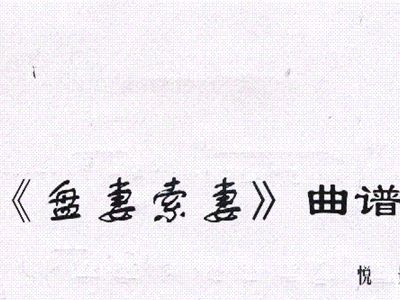 《盘妻索妻》曲谱
悦